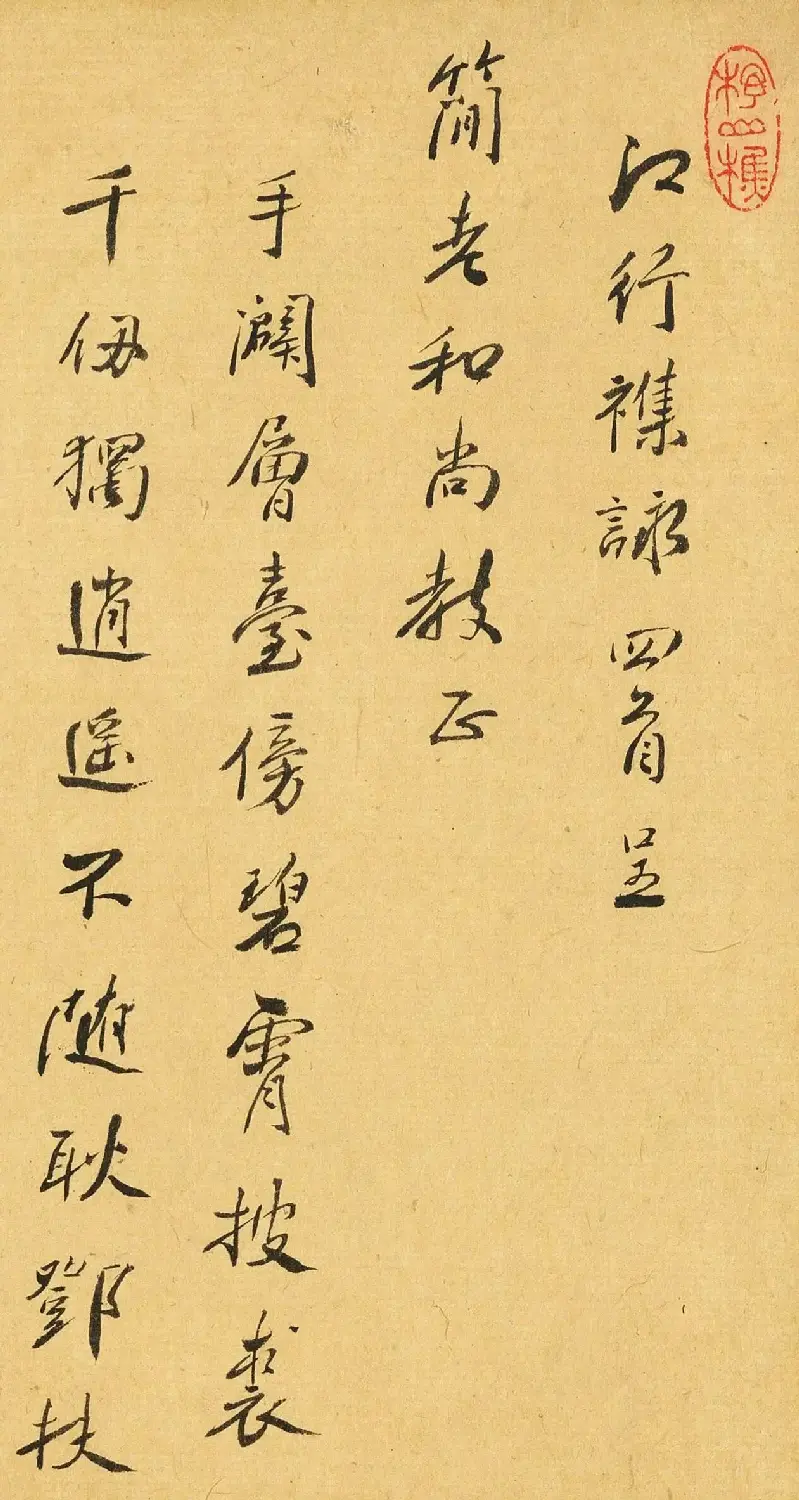 江行襍詠四首呈
簡老和尚教正
手闢層臺傍碧霄披裘
千仞獨逍遥不随耿鄧扶